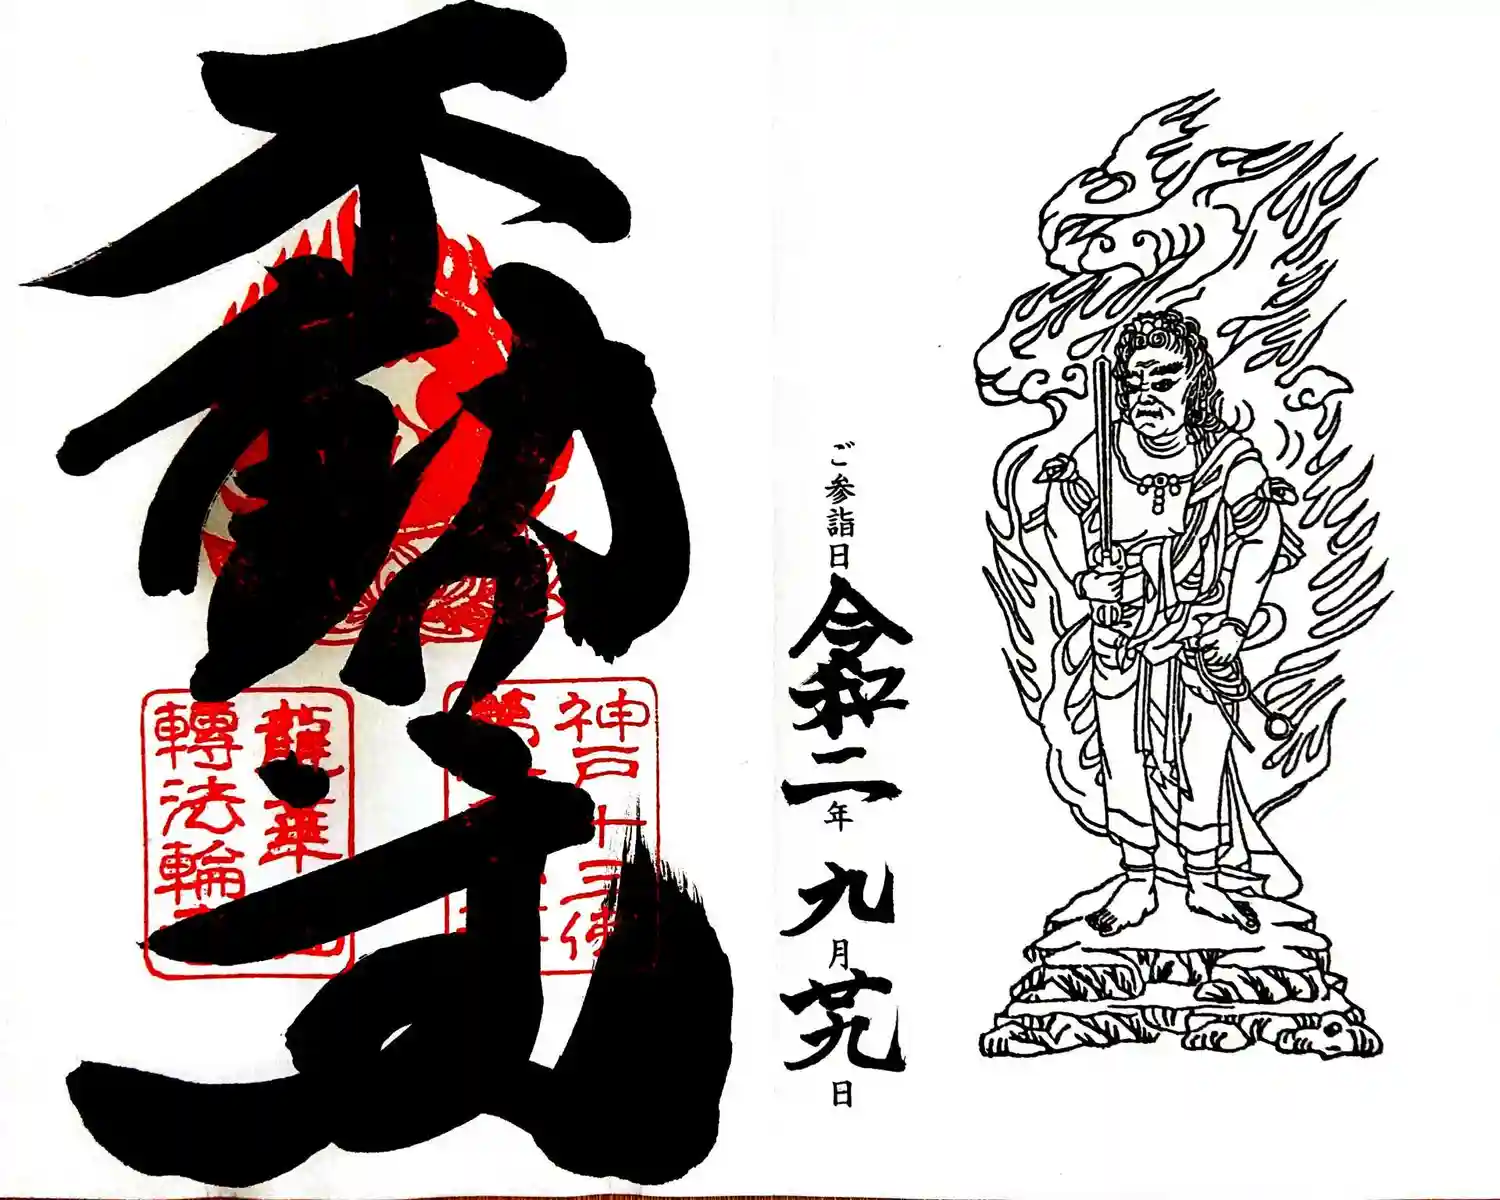 不動明王
神戸十三佛
龍華山
轉法輪寺
ご参詣日
令和二年
九月
廿九日